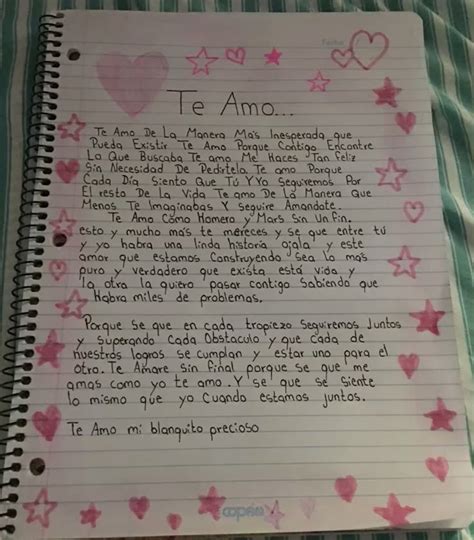 Fecha
Te Amo...
Te Amo De La Manera Más Inesperada que
Pueda Existir Te Amo Porque Contigo Encontre
Lo Que Buscaba Te amo Me Haces Tan feliz
Sin Necesidad De Pedirtelo. Te amo Porque
Cada Día Siento Que Tú Y Yo Seguiremos Por
El resto De La Vida Te amo De La Manera Que
Menos Te Imaginabas Y Seguire Amandote.
Te Amo Cómo Homero y Mars Sin Un fin.
esto y mucho más te mereces y se que entre tú
y yo habra una linda historia ojala y este
amor que estamos Construyendo sea lo mas
puro y verdadero que exista está vida y
la otra la quiero pasar contigo Sabiendo que
Habra miles de problemas.
Porque se que en cada tropiezo Seguiremos Juntos
y Superando Cada Obstaculo y que Cada de
nuestros logros se cumplan y estar uno para el
Otro. Te Amare Sin final porque se que me
amas como yo te amo. Y se que se Siente
lo mismo que yo Cuando estamos juntos.
Te Amo mi blanquito precioso